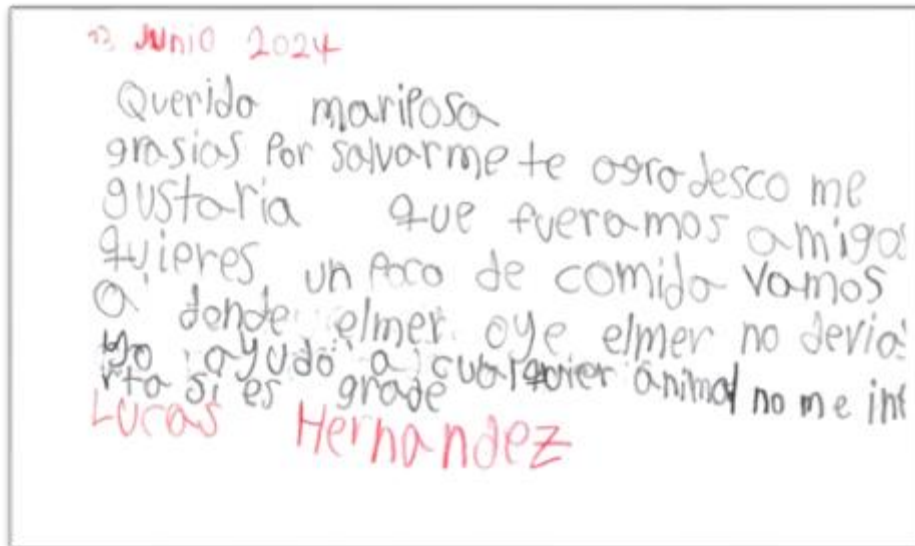 Junio 2024
Querida mariposa
grasias Por salvarme te agradesco me
gustaria que fueramos amigos
quieres un Poco de comida vamos
a donde elmer oye elmer no devia
yo ayudo a cualquier animal no me int
rta si es grade
Lucas Hernandez